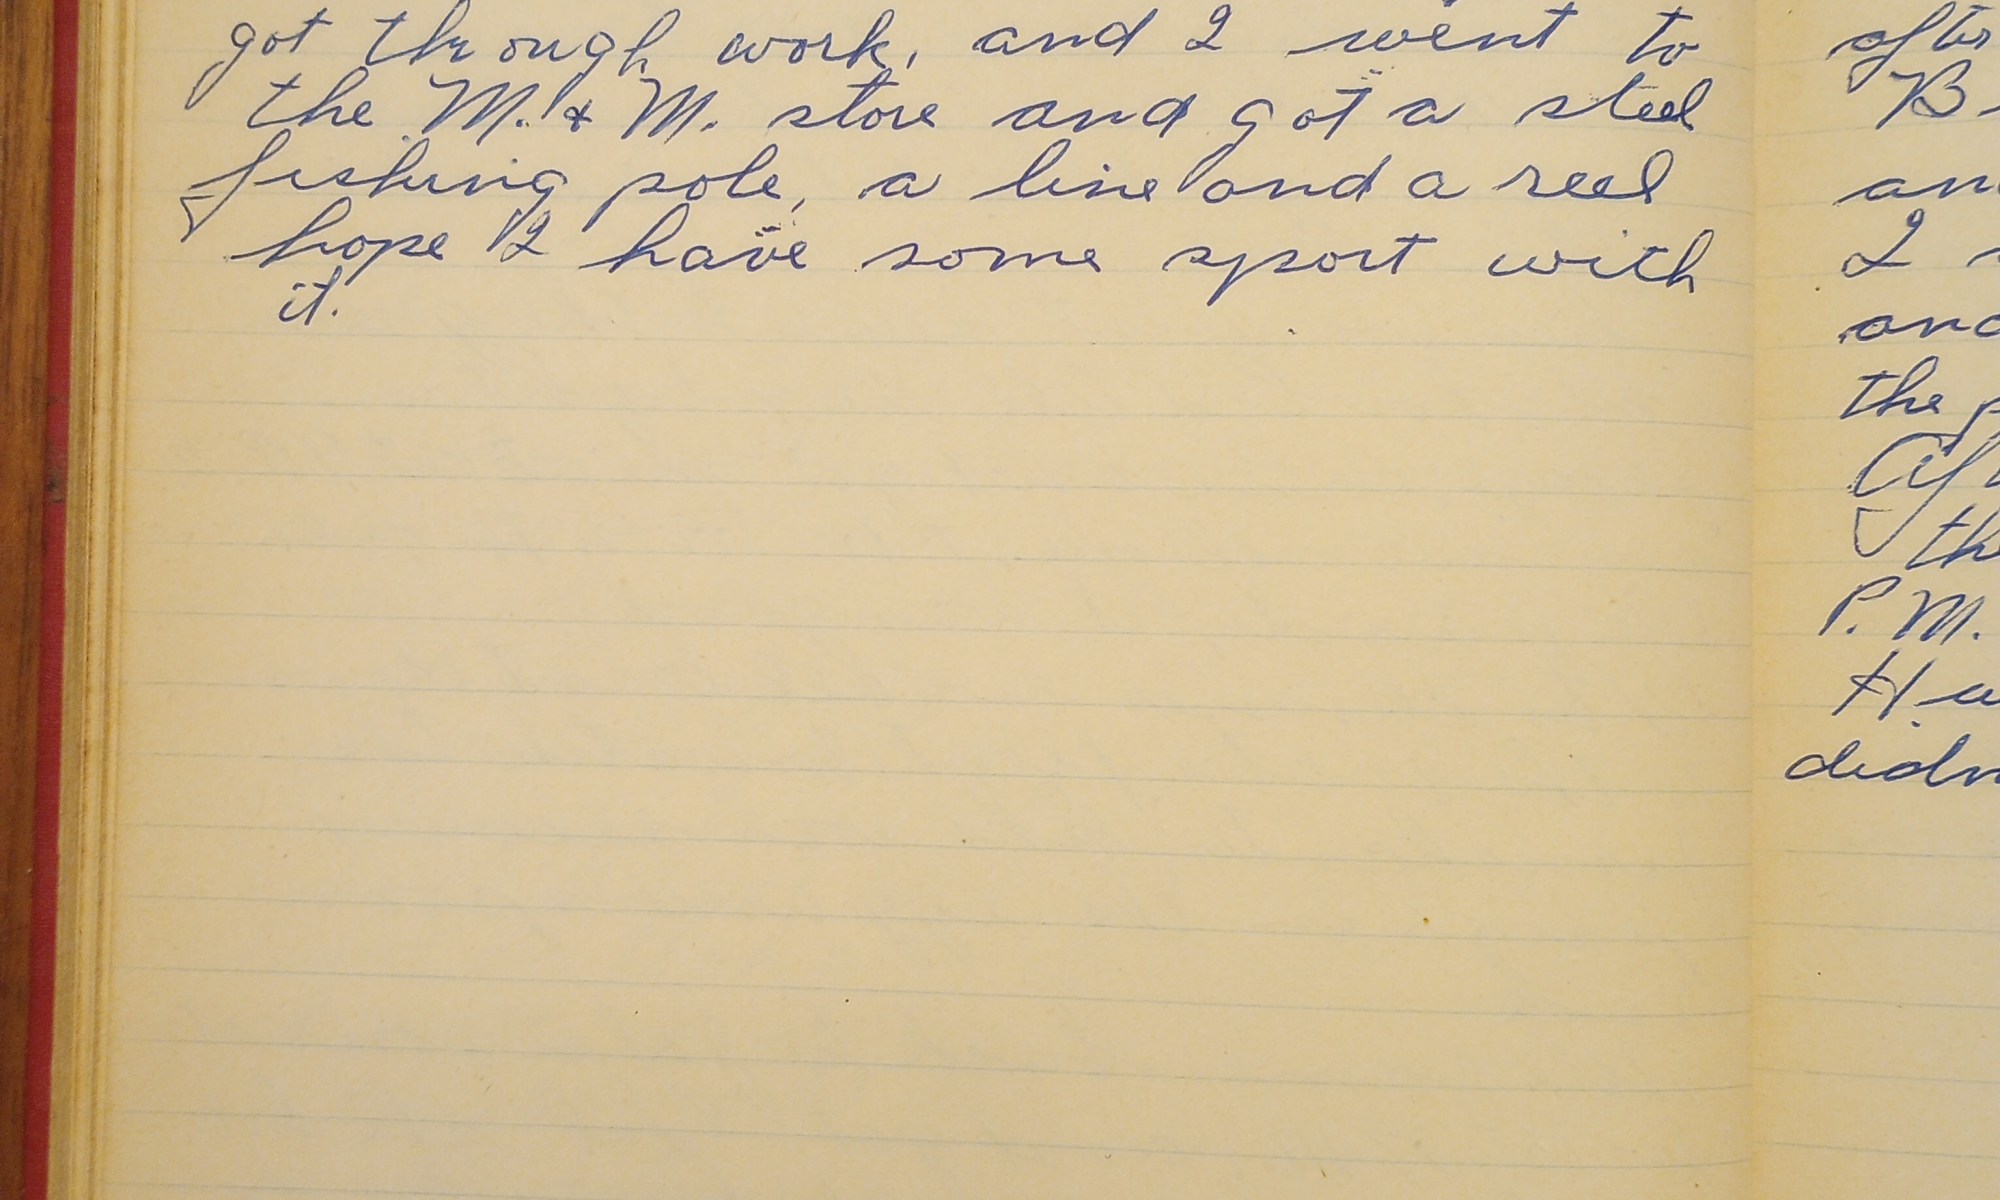 got through work, and I went to
the M. & M. store and got a steel
fishing pole, a line and a reel
hope I have some sport with
it.
after
B
and
I
and
the
the
P. M.
didn